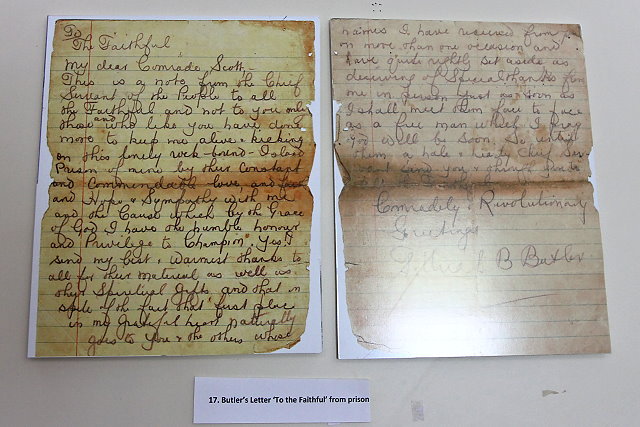 To
The Faithful
My dear Comrade Scott,
This is a note from the Chief
Servant of the People to all
the Faithful and not to you only
and
those who like you have done
more to keep me alive & kicking
on this lonely rock-bound Island
Prison of mine by their constant
and Commendable love and faith
and Hope & Sympathy with me
and the Cause which by the Grace
of God I have the humble honour
and Privilege to Champion. Yes I
send my best & warmest thanks to
all for their Material as well as
their Spiritual Gifts and that in
spite of the fact that first place
in my grateful heart naturally
goes to you & the others whose
names I have received from
on more than one occasion and
have quite rightly set aside as
deserving of Special thanks from
me in person just as soon as
I shall meet them face to face
as a free man which I pray
God will be soon. So until
them a hale & hearty Chief Ser-
vant and you &
Comradely & Revolutionary
Greetings
B Butler
17. Butler's Letter 'To the Faithful' from prison